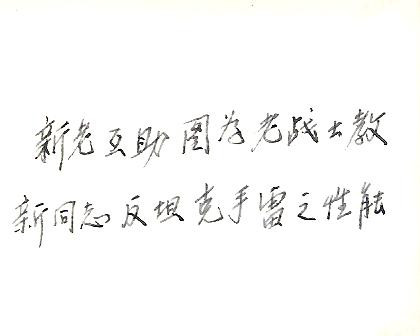 新老互助 图为老战士教
新同志反坦克手雷之性能